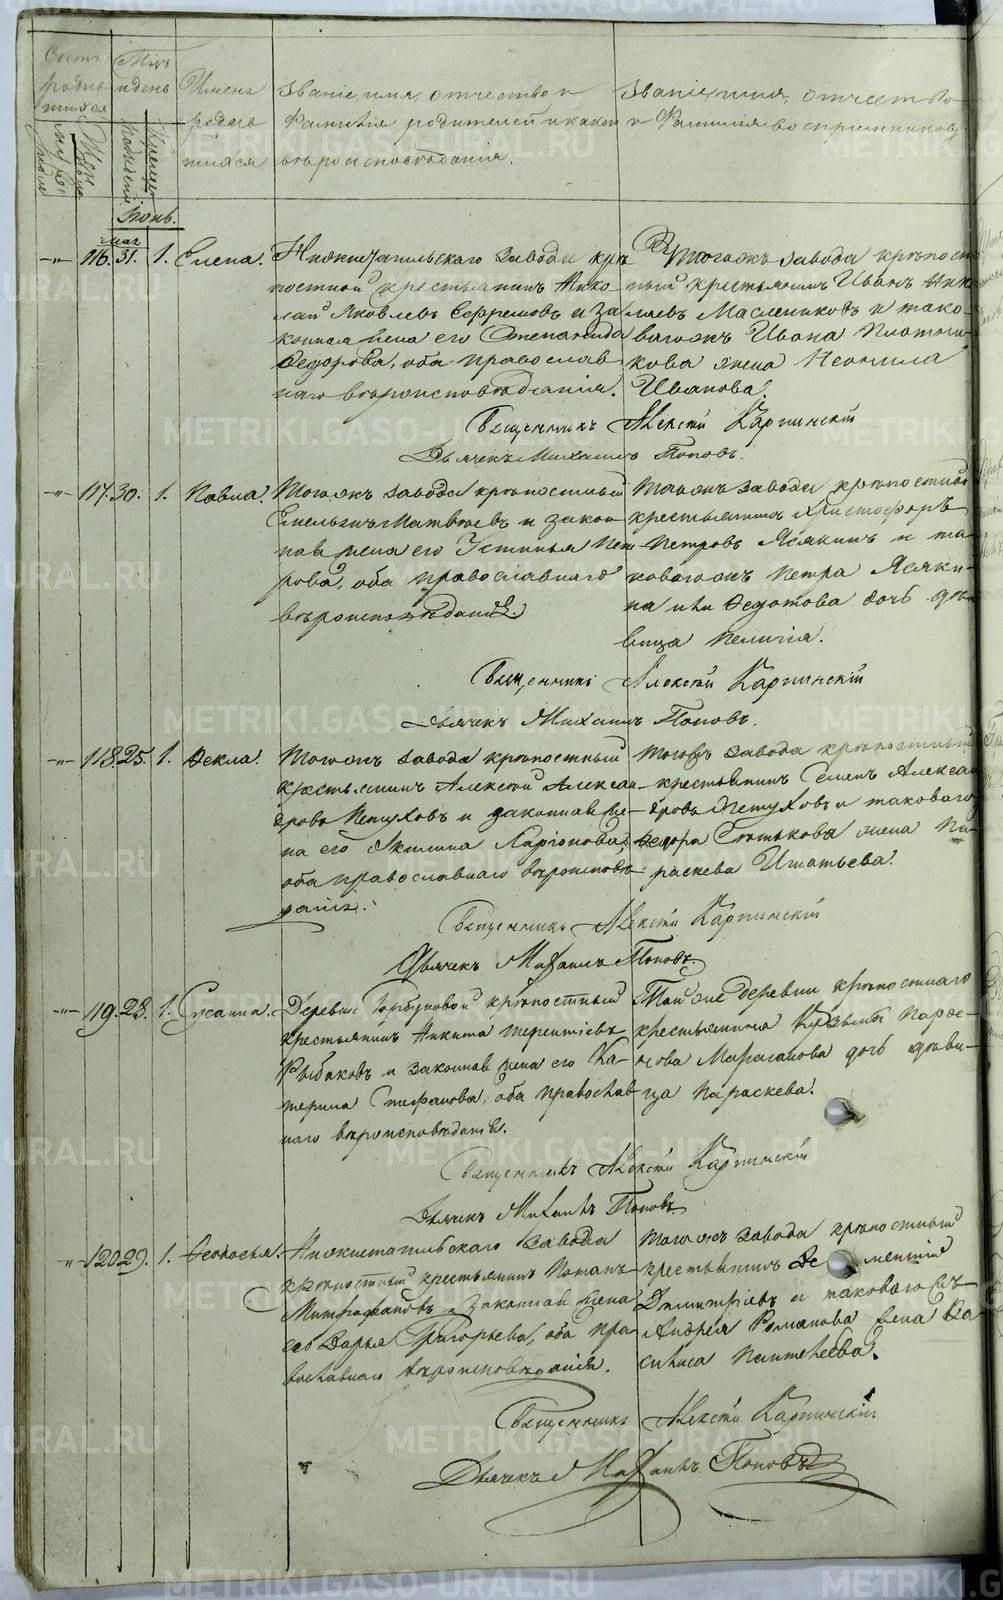 Счетъ родив-шихся
Мсцъ и день
Имена родив-шихся
Званіе, имя, отчество и фамилія родителей и какого вѣроисповѣданія.
Званіе, имя, отчество и фамилія воспріемниковъ.
Женска
рожденія
Крещен
Іюнь.
мая
116. 31. 1. Елена.
Нижнетагильскаго завода крѣ-
постной крестьянинъ Нико-
лай Яковлевъ Ефремовъ и за
конная жена его Степанида
Ѳедорова, оба православ
наго вѣроисповѣданія.
Тогожъ завода крѣпост
ный крестьянинъ Иванъ Ник
лаевъ Маслениковъ и тако-
вагожъ Ивана Плотни-
кова жена Неонила
Иванова.
Священникъ Алексѣй Карпинскій
Дьячекъ Михаилъ Поповъ.
117. 30. 1. Павла.
Тогожъ завода крѣпостный
Емельянъ Матвѣевъ и закон
ная жена его Устинья Пет
рова, оба православнаго
вѣроисповѣданія.
Тогожъ завода крѣпостный
крестьянинъ Христофоръ
Петровъ Ясякинъ и та
ковагожъ Петра Ясяки-
на Ѳедотова дочь дѣ-
вица Пелагія.
Священникъ Алексѣй Карпинскій
Дьячекъ Михаилъ Поповъ.
118. 25. 1. Ѳекла.
Тогожъ завода крѣпостный
крестьянинъ Алексѣй Алексан
дровъ Пѣтуховъ и законная же-
на его Акилина Ларіонова,
оба православнаго вѣроисповѣ
данія.
Тогожъ завода крѣпостный
крестьянинъ Семенъ Алексан
дровъ Пѣтуховъ и таковаго
Ѳедора жена Па-
раскева Игнатьева.
Священникъ Алексѣй Карпинскій
Дьячекъ Михаилъ Поповъ.
119. 28. 1. Сусанна.
Деревни Горбуновой крѣпостный
крестьянинъ Никита Терентіевъ
Рыбаковъ и законная жена его Ка-
терина Стефанова, оба православ
наго вѣроисповѣданія.
Той же деревни крѣпостнаго
крестьянина Козьмы Парѳе-
нова дочь дѣви-
ца Параскева.
Священникъ Алексѣй Карпинскій
Дьячекъ Михаилъ Поповъ
120. 29. 1. Ѳеодосья.
Нижнетагильскаго завода
крѣпостный крестьянинъ Потапъ
Митрофановъ и законная жена
его Дарья Григорьева, оба пра
вославнаго вѣроисповѣданія.
Тогожъ завода крѣпостный
крестьянинъ
Димитріевъ и таковаго
Андрея Романова жена Ва
силиса Пантелѣева.
Священникъ Алексѣй Карпинскій
Дьячекъ Михаилъ Поповъ
METRIKI.GASO-URAL.RU